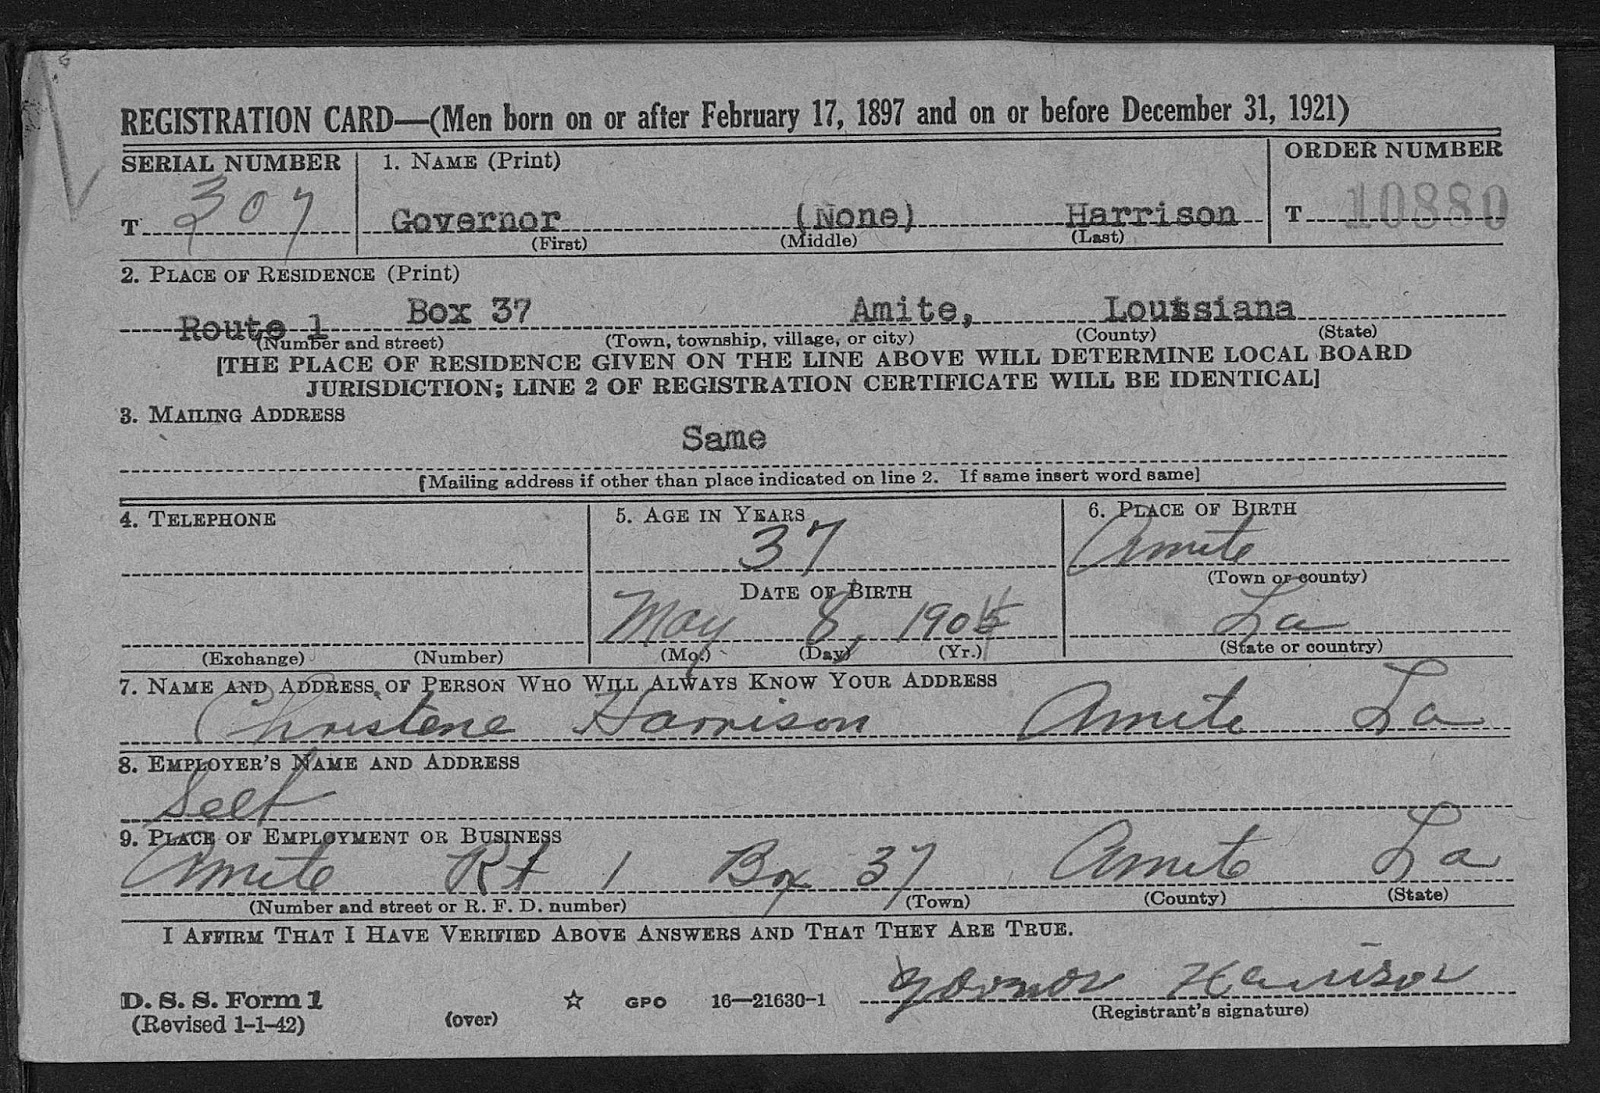 REGISTRATION CARD—(Men born on or after February 17, 1897 and on or before December 31, 1921)
SERIAL NUMBER
1. NAME (Print)
ORDER NUMBER
T 307
Governor (None) Harrison
T 10880
(First) (Middle) (Last)
2. PLACE OF RESIDENCE (Print)
Route 1 Box 37 Amite, Louisiana
(Number and street) (Town, township, village, or city) (County) (State)
[THE PLACE OF RESIDENCE GIVEN ON THE LINE ABOVE WILL DETERMINE LOCAL BOARD
JURISDICTION; LINE 2 OF REGISTRATION CERTIFICATE WILL BE IDENTICAL]
3. MAILING ADDRESS
Same
[Mailing address if other than place indicated on line 2. If same insert word same]
4. TELEPHONE
5. AGE IN YEARS
6. PLACE OF BIRTH
37
Amite
(Town or county)
DATE OF BIRTH
May 8, 1905
La
(Exchange) (Number)
(Mo.) (Day) (Yr.)
(State or country)
7. NAME AND ADDRESS OF PERSON WHO WILL ALWAYS KNOW YOUR ADDRESS
Christene Harrison Amite La
8. EMPLOYER'S NAME AND ADDRESS
Self
9. PLACE OF EMPLOYMENT OR BUSINESS
Amite Rt 1 Box 37 Amite La
(Number and street or R. F. D. number) (Town) (County) (State)
I AFFIRM THAT I HAVE VERIFIED ABOVE ANSWERS AND THAT THEY ARE TRUE.
Govrnor Harrison
D. S. S. Form 1
(Revised 1-1-42)
(over)
☆ GPO 16—21630-1
(Registrant's signature)